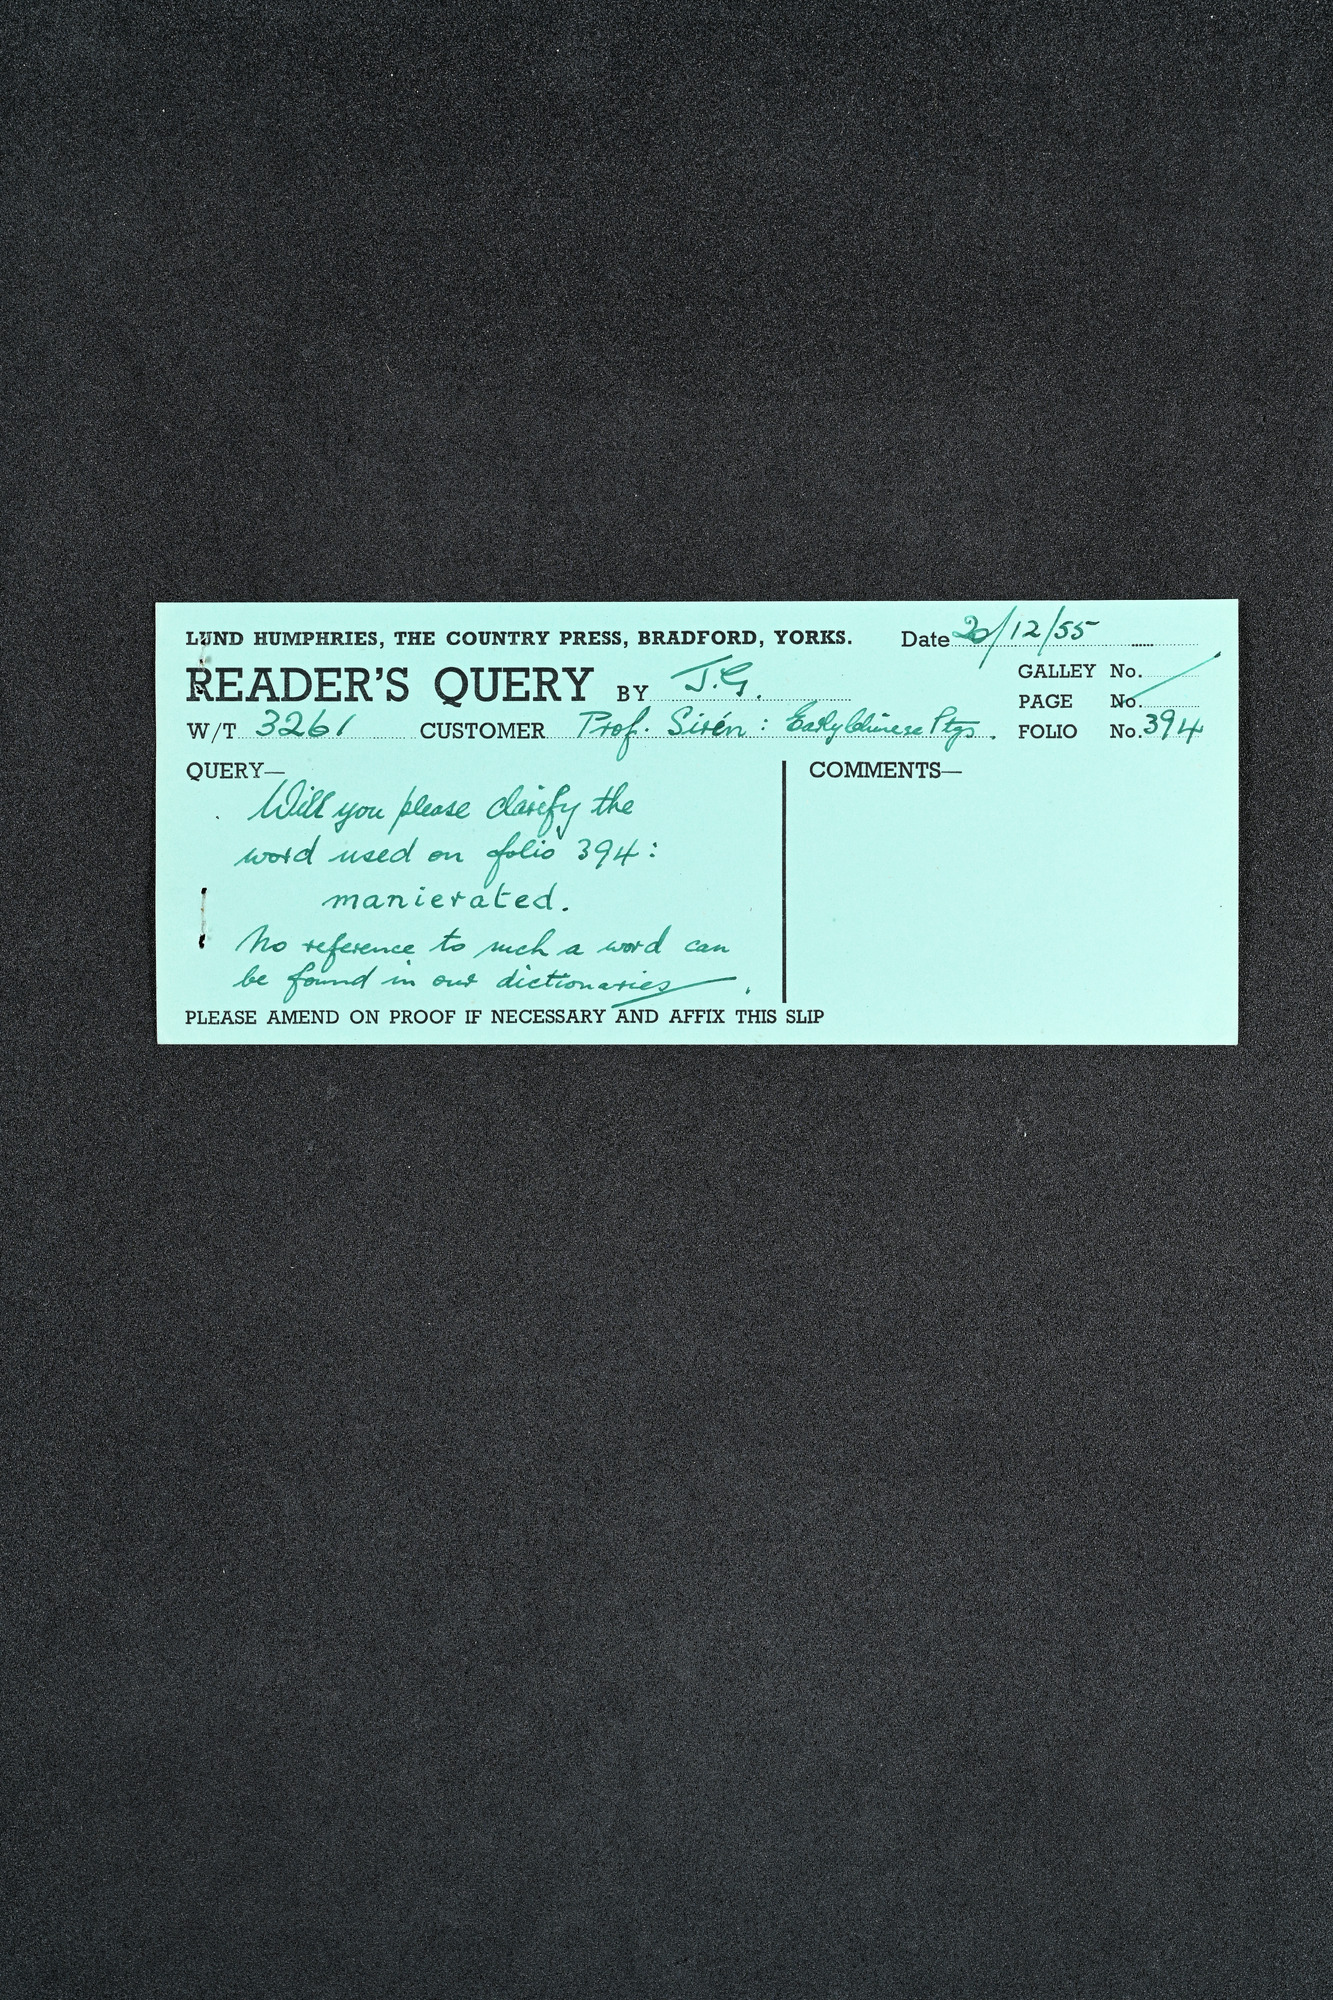 LUND HUMPHRIES, THE COUNTRY PRESS, BRADFORD, YORKS. Date 20/12/55
READER'S QUERY BY J.G. GALLEY No.
PAGE No.
W/T 3261 CUSTOMER Prof. Sirén : Early Chinese Ptgs. FOLIO No. 394
QUERY— COMMENTS—
Will you please clarify the
word used on folio 394:
manierated.
No reference to such a word can
be found in our dictionaries.
PLEASE AMEND ON PROOF IF NECESSARY AND AFFIX THIS SLIP